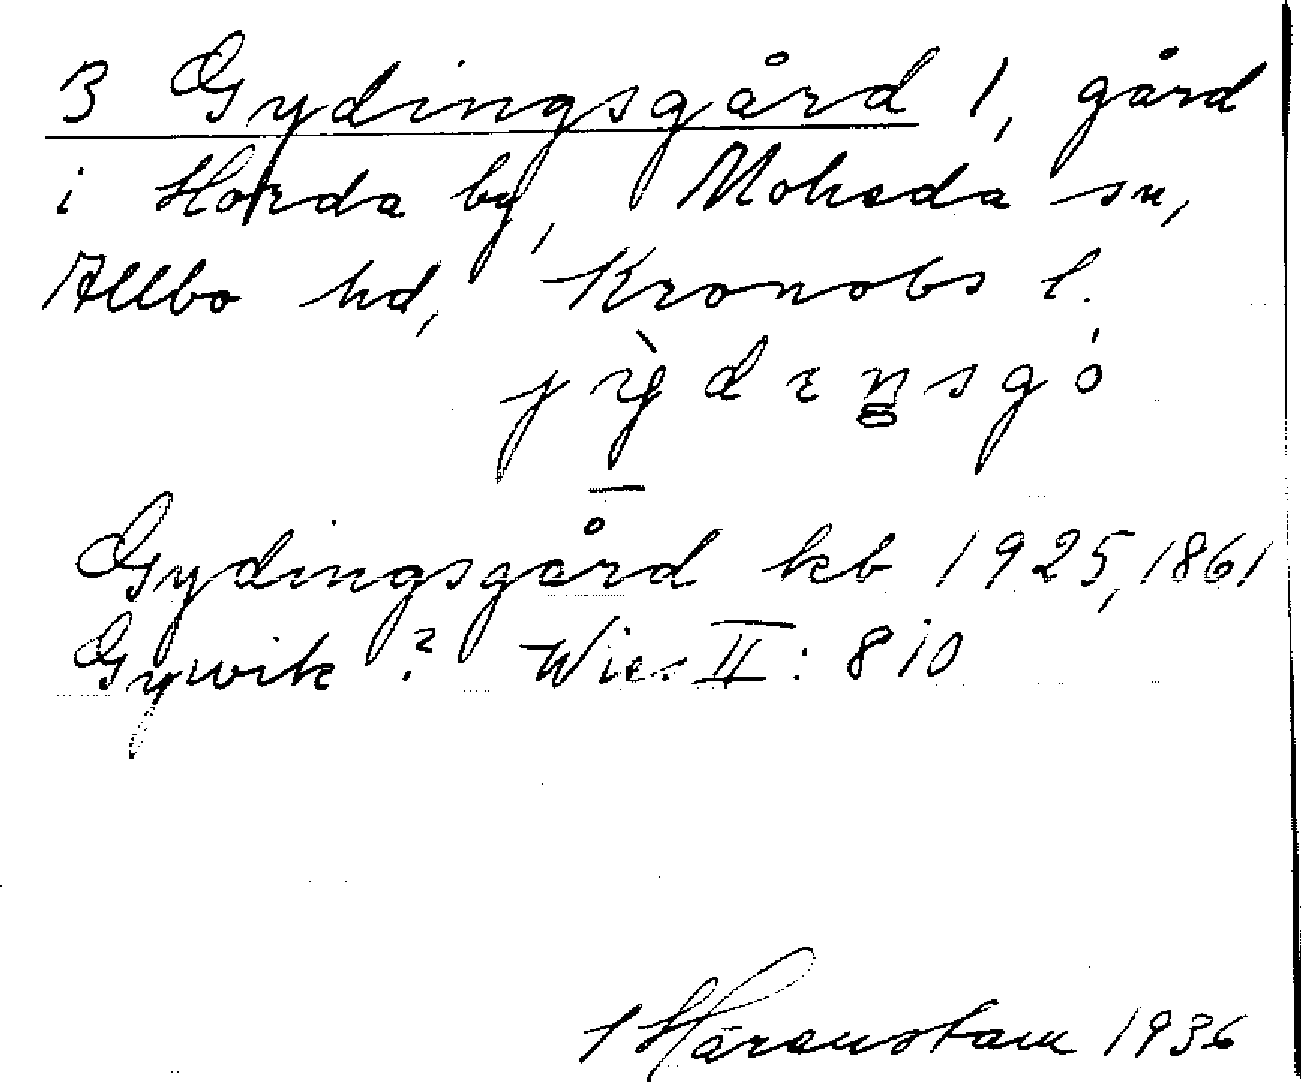 3 Gydingsgård 1, gård
i Horda by, Moheda sn,
Allbo hd, Kronobs l.
jỳdɪŋsgó
Gydingsgård kb 1925, 1861
Gyvik? Wies II: 810
Härenstam 1936